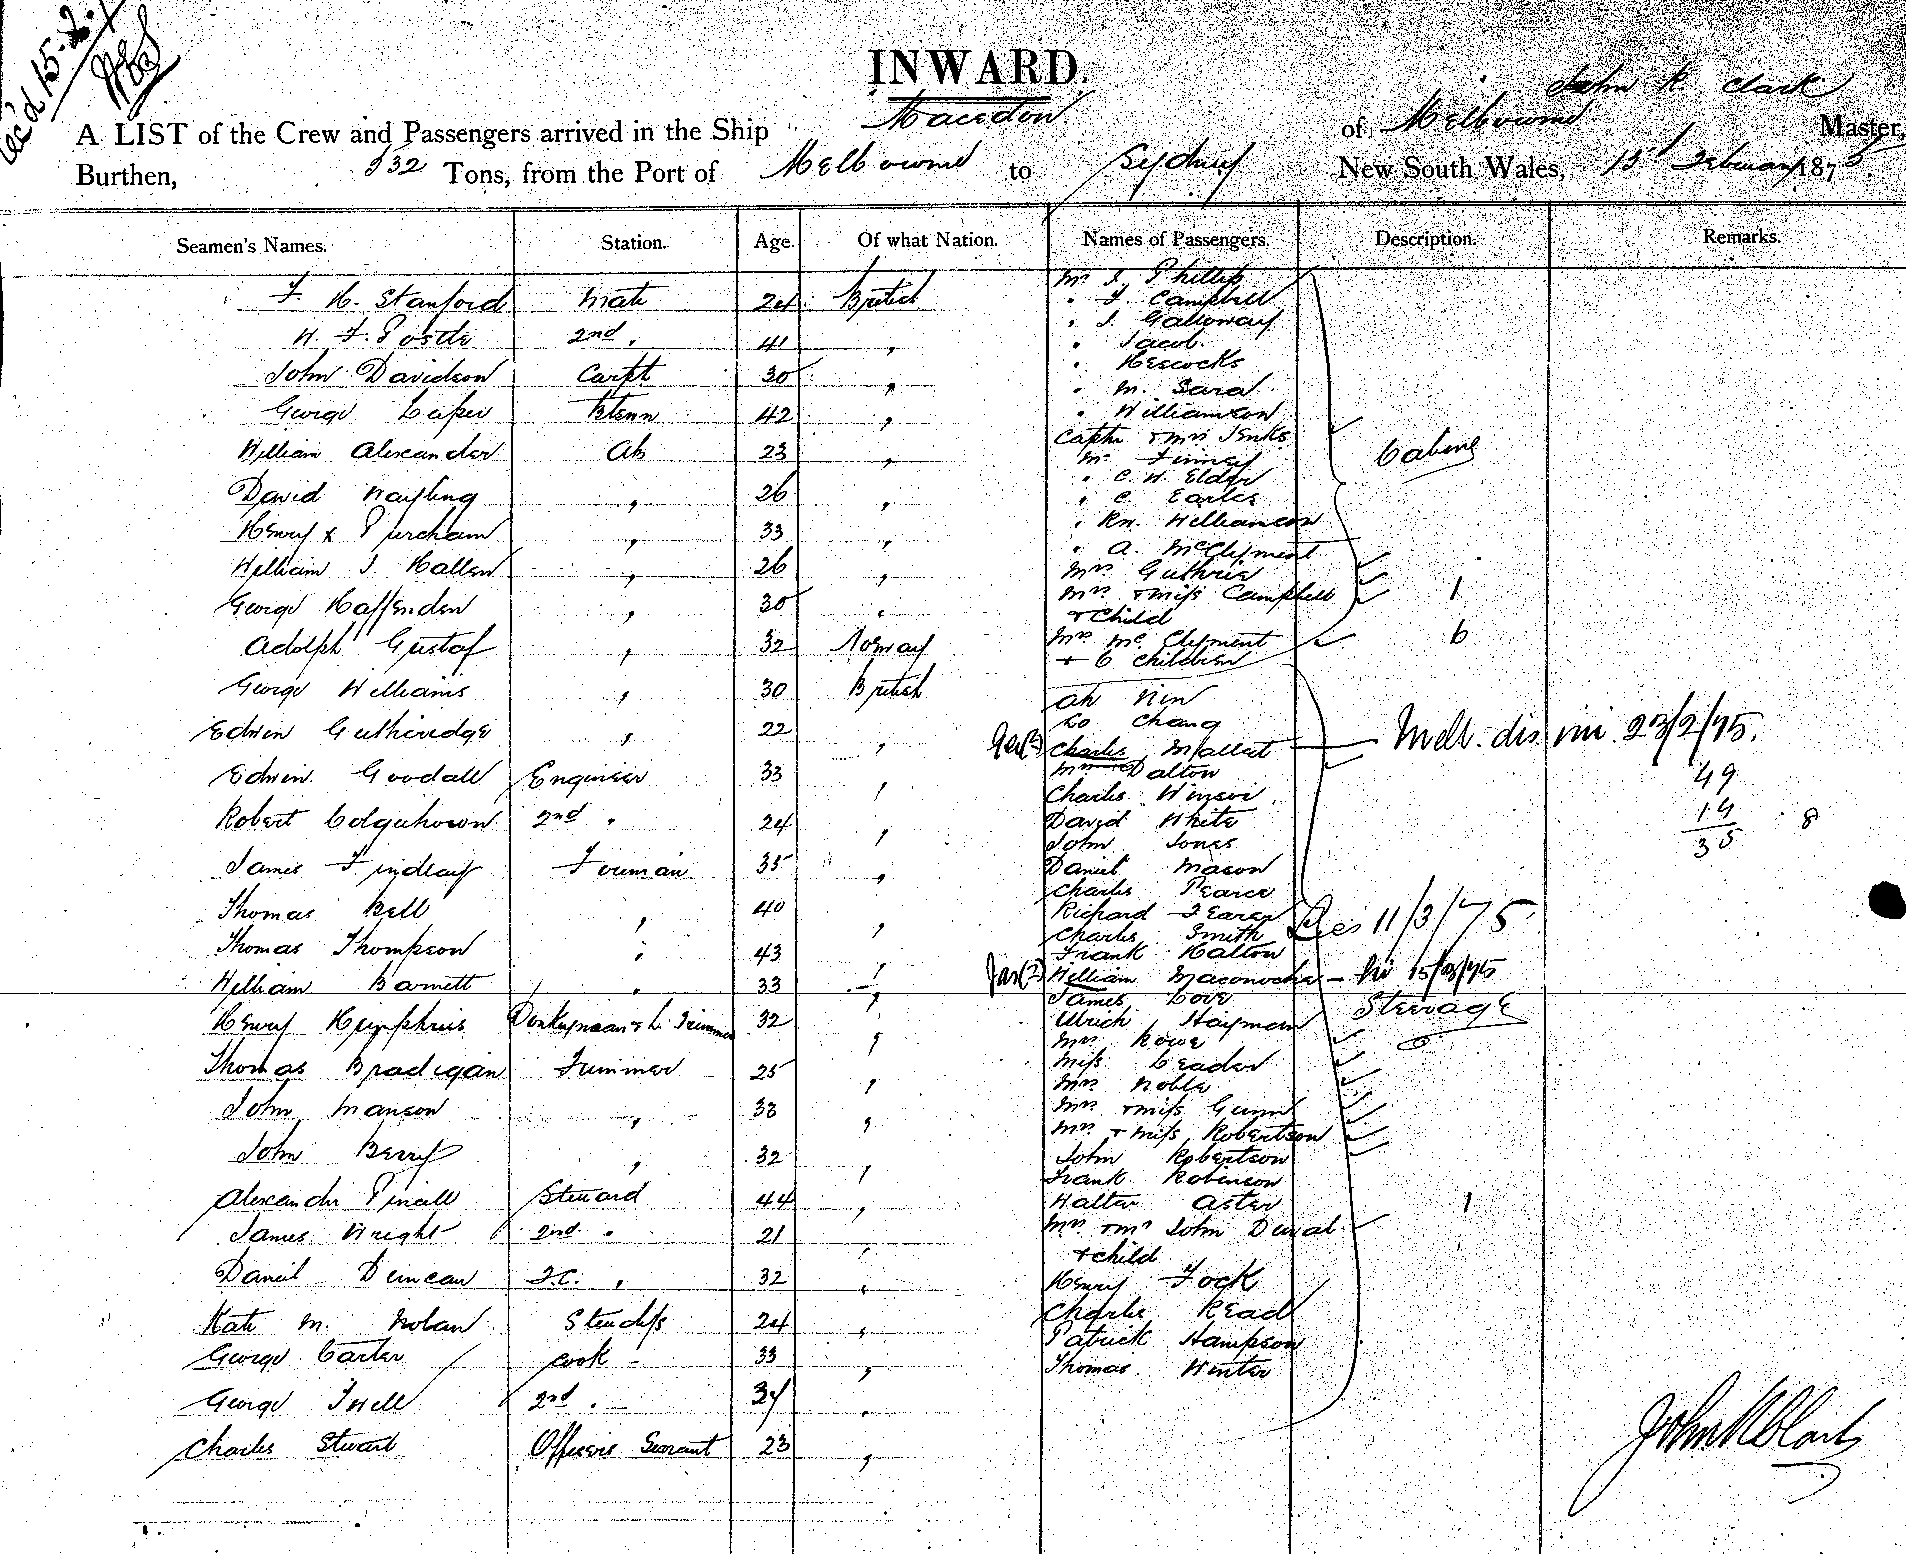 INWARD.
John R. Clark
A LIST of the Crew and Passengers arrived in the Ship Macedon of Melbourne Master,
Burthen, 532 Tons, from the Port of Melbourne to Sydney New South Wales, 15 February 1875
Seamen's Names. Station. Age. Of what Nation. Names of Passengers. Description. Remarks.
F. H. Stanford Mate 24 British
W. F. Postle 2nd " 41 "
John Davidson Carpt 30 "
George 42 "
William Alexander Ab 23 "
David 26 "
Henry 33 "
William J. Hallen " 26 "
George Haffenden " 30 "
Adolph Gustaf " 32 Norway
George Williams " 30 British
Edwin Gutheridge " 22 "
Edwin Goodall Engineer 33 "
Robert Colquhoun 2nd " 24 "
James Findlay 35 "
Thomas Bell " 40 "
Thomas Thompson " 43 "
William Barnett " 33 "
Henry Humphries Donkeyman & L. Trimmer 32 "
Thomas Bradigan Trimmer 25 "
John Manson " 38 "
John Berry " 32 "
Alexander Steward 44 "
James Wright 2nd " 21 "
Daniel Duncan F.C. " 32 "
Kate M. Nolan Stewdss 24 "
George Carter Cook 33 "
George 2nd "
Charles Stewart Officers Servant 23 "
Mr J. Phillips
" F. Campbell
" J. Galloway
" Jacob
" Hescocks
" M. Sara
" Williamson
Captn & Mrs Jenks
Mr Finney
" C. W. Elder
" C. Earles
" Rn. Williamson
" A. McClyment
Mrs Guthrie
Mrs & Miss Campbell 1
& Child
Mrs McClyment 6
& 6 Children
Cabin
Ah Kin
Charles Mallett Melb. dis 23/2/75.
Mrs Dalton
Charles Winsor
David White
John Jones
Daniel Mason
Charles Pearce
Richard
Charles Smith
Frank Halton
William Maconochie 15/3/75
James Love
Ulrich Hayman
Mrs Rowe
Miss Leader
Mrs Noble
Mrs & Miss Gunn
Mrs & Miss Robertson
John Robertson
Frank Robinson
Walter Aster
Mrs & Mr John Duval 1
& Child
Henry Fock
Charles Read
Patrick Hampson
Thomas Winter
Steerage
49
14
35
8
Des 11/3/75
John R Clark